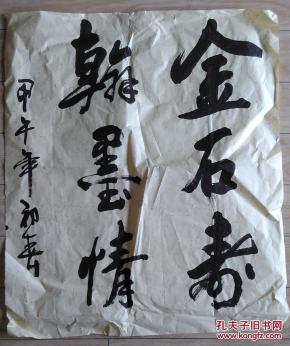 金石寿
翰墨情
甲午年初春
孔夫子旧书网